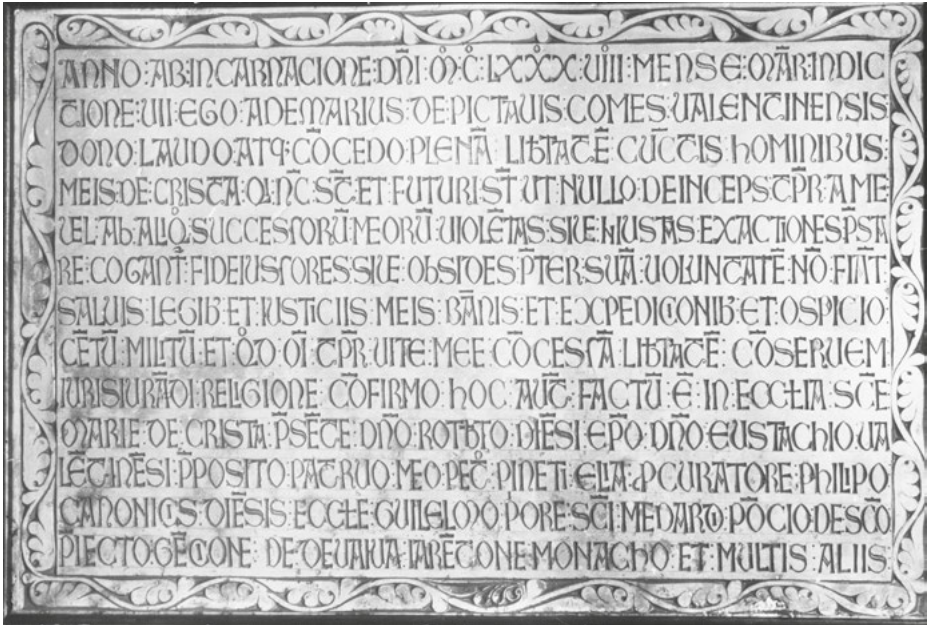 ANNO:AB:INCARNACIONE:DNI M̊ C̊ LXXX̊ VIIII̊ MENSE:MAR:INDIC
TIONE:VII:EGO:ADEMARIUS:DE:PICTAVIS:COMES:VALENTINENSIS:
DONO:LAUDO:ATQ:COCEDO:PLENĀ LIBTATĒ CUCTIS hOMINIBUS:
MEIS:DE:CRISTA:QI:NC:ST:ET FUTURI:ST UT:NULLO:DEINCEPS:TPR:A ME
VEL:Ab:ALIQ̊:SUCCESSORU:MEORU:VIOLETAS:SIVE:NIUSTAS:EXACTIONES:PSTA
RE:COGANT̄:FIDEIUSSORES:SIVE:ObSIDES:PTER:SUĀ:UOLUNTATĒ:NŌ:FIAT
SALVIS:LEGIB:ET:IUSTICIIS:MEIS:BĀNIS:ET:EXPEDICIONIB:ET:OSPICIO
CĒTU:MILITŪ:ET:QD:OI:TPR:VITE:MEE:COCESSA:LIBTATĒ:COSERVEM
IURISIURADI:RELIGIONE:COFIRMO:hOC:AUT̄:FACTŪ:Ē:IN:ECCLIA:SCE
MARIE:DE:CRISTA:PSETE:DNO:ROTBTO:DIESI:EPO:DNO:EUSTAChIO:VA
LETINESI:PPOSITO:PATRUO:MEO:PET̊:PINETI:ELIA:PCURATORE:PhILIPO
CANONICIS:DIESIS:ECCLE:GUILELMO:PORE:SCI:MEDARDI:POCIO:DESCO
PLECTO:GETIONE:DE:DEVAIUA:IARETONE:MONAChO:ET:MULTIS:ALIIS: